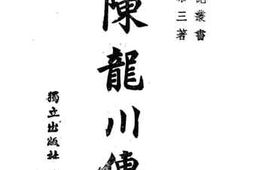 叢書
三著
陳龍川傳
獨立出版社